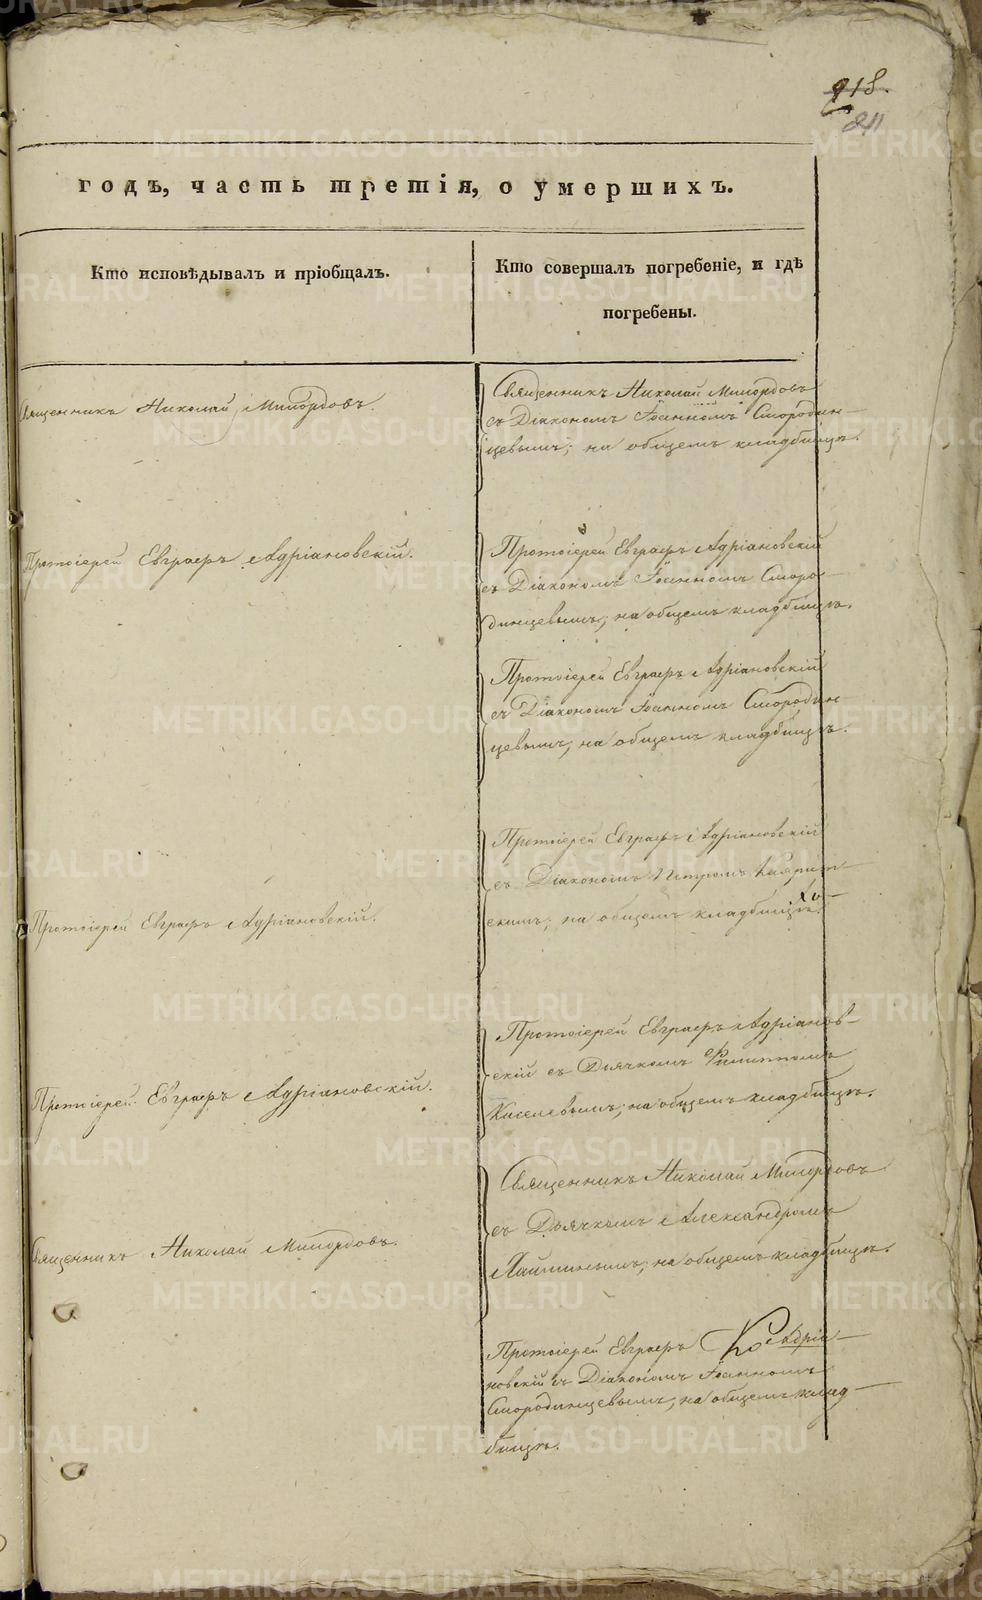 918.
211
годъ, часть третія, о умершихъ.
Кто исповѣдывалъ и пріобщалъ.
Кто совершалъ погребеніе, и гдѣ
погребены.
Священникъ Николай Милордовъ.
Священникъ Николай Милордовъ
съ Діакономъ Іоанномъ Смородин-
цевымъ; на общемъ кладбищѣ.
Протоіерей Евграфъ Адріановскій.
Протоіерей Евграфъ Адріановскій
съ Діакономъ Іоанномъ Сморо-
динцевымъ, на общемъ кладбищѣ.
Протоіерей Евграфъ Адріановскій
съ Діакономъ Іоанномъ Смородин-
цевымъ, на общемъ кладбищѣ.
Протоіерей Евграфъ Адріановскій.
Протоіерей Евграфъ Адріановскій
съ Діакономъ Петромъ
скимъ; на общемъ кладбищѣ.
Протоіерей Евграфъ Адріановскій.
Протоіерей Евграфъ Адріанов-
скій съ Дьячкомъ
Киселевымъ; на общемъ кладбищѣ.
Священникъ Николай Милордовъ.
Священникъ Николай Милордовъ
съ Дьячкомъ Александромъ
на общемъ кладбищѣ.
Протоіерей Евграфъ Адріа-
новскій съ Діакономъ Іоанномъ
Смородинцевымъ, на общемъ клад-
бищѣ.
METRIKI.GASO-URAL.RU